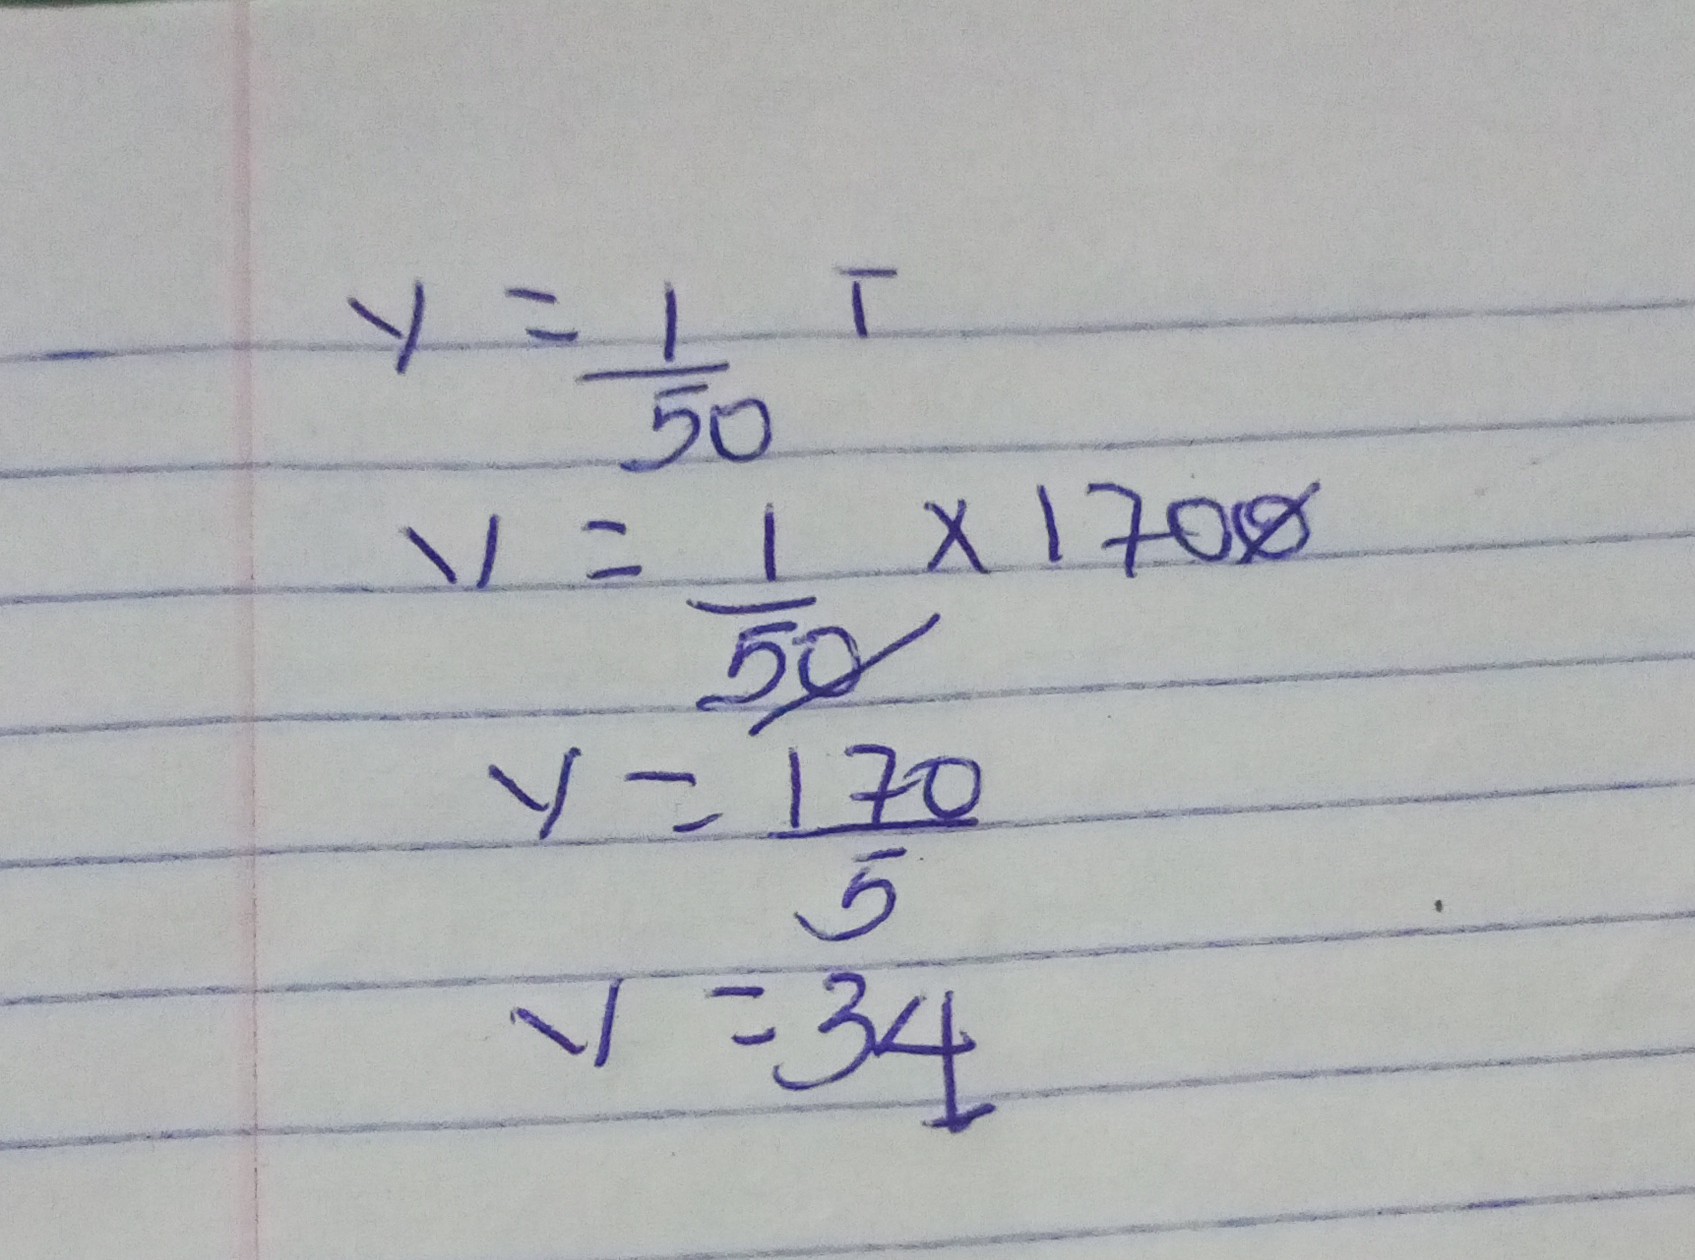 V = 1/50 T
V = 1/50 x 1700
V = 170/5
V = 34